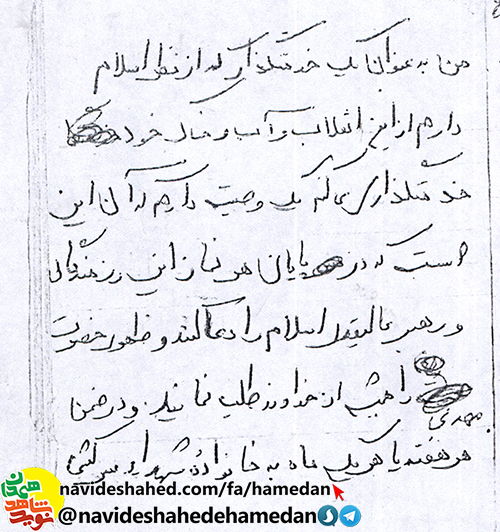 من به عنوان یک خدمتگذاری که از نظر اسلام
دارم از این انقلاب و آب و خاک خود
خدمتگذاری می کنم یک وصیت دارم که آن این
است که در پایان هر نماز این رزمندگان
و رهبر عالیقدر اسلام را دعا کنند و ظهور حضرت
مهدی را همیشه از خداوند طلب نمایند و در ضمن
هر هفته یا هر یک ماه به خانوادهٔ شهداء سرکشی
نوید شاهد همدان
navideshahed.com/fa/hamedan
@navideshahedehamedan